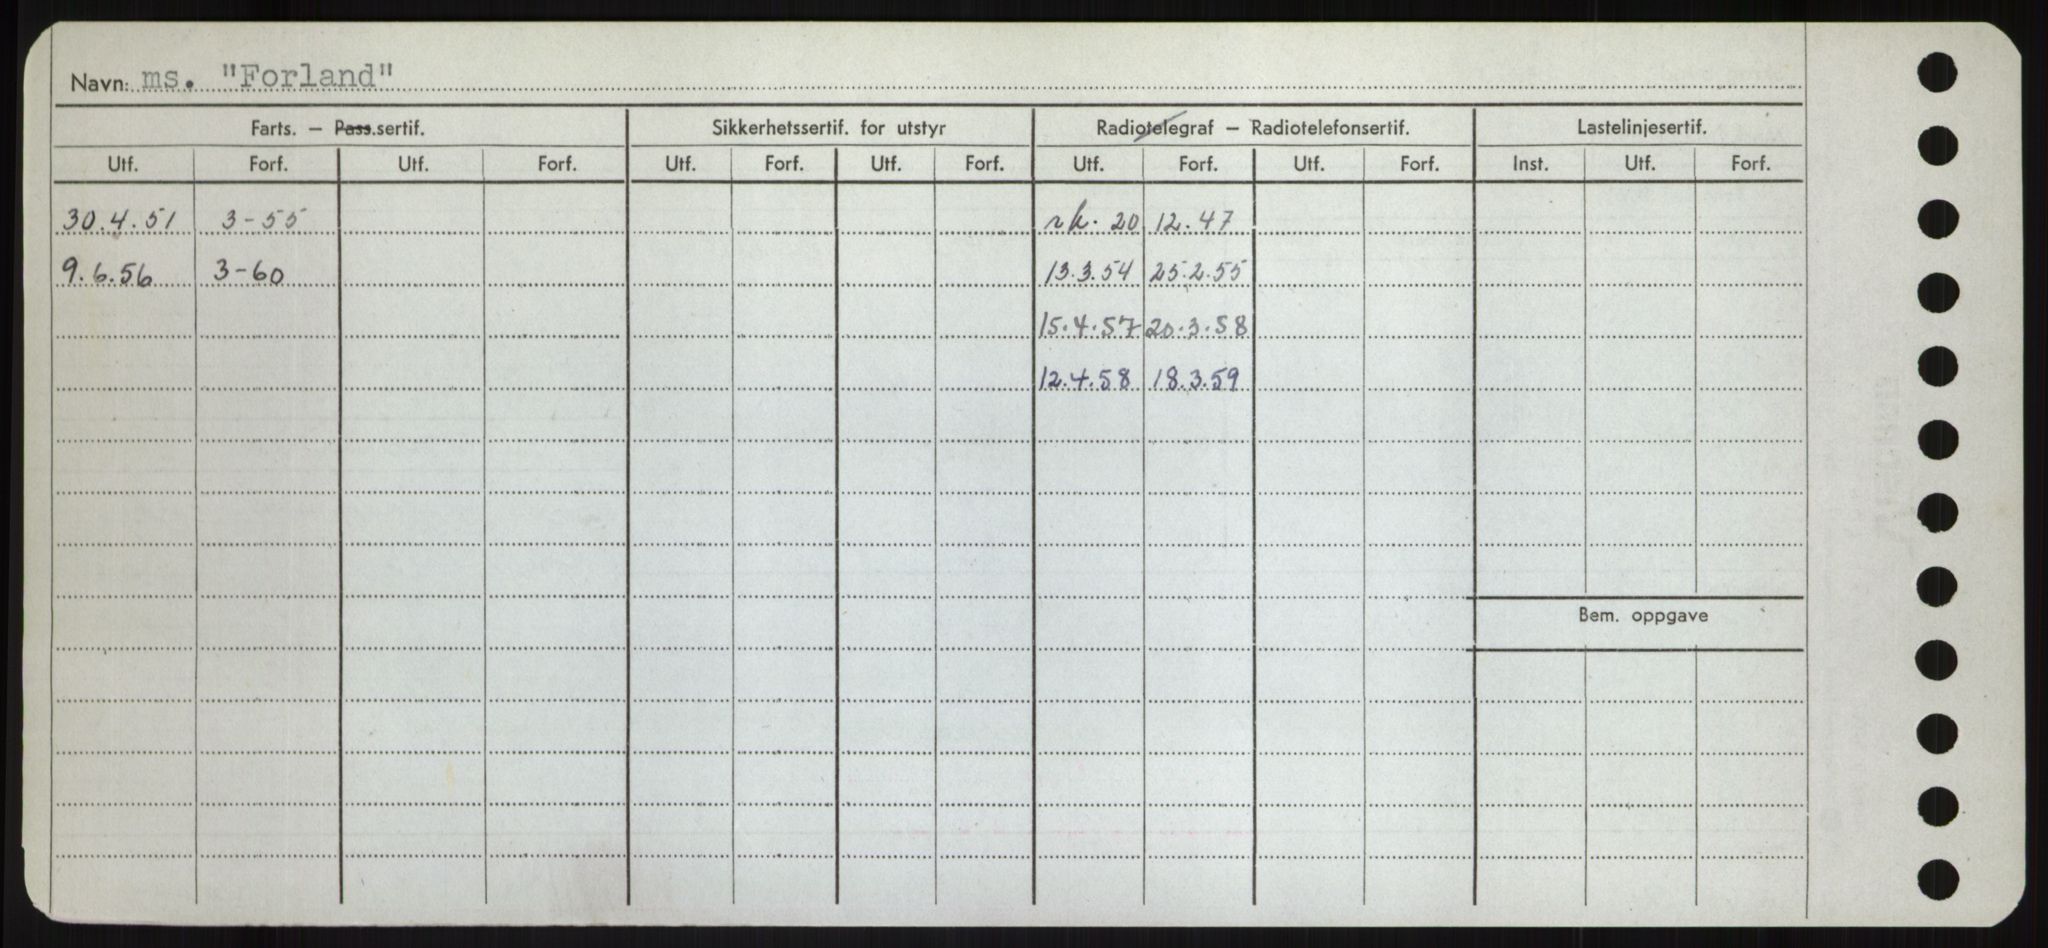 Navn: ms. "Forland"
Farts. – Pass.sertif. Sikkerhetssertif. for utstyr Radiotelegraf – Radiotelefonsertif. Lastelinjesertif.
Utf. Forf. Utf. Forf. Utf. Forf. Utf. Forf. Utf. Forf. Utf. Forf. Inst. Utf. Forf.
30.4.51 3-55 rk. 20 12.47
9.6.56 3-60 13.3.54 25.2.55
15.4.57 20.3.58
12.4.58 18.3.59
Bem. oppgave